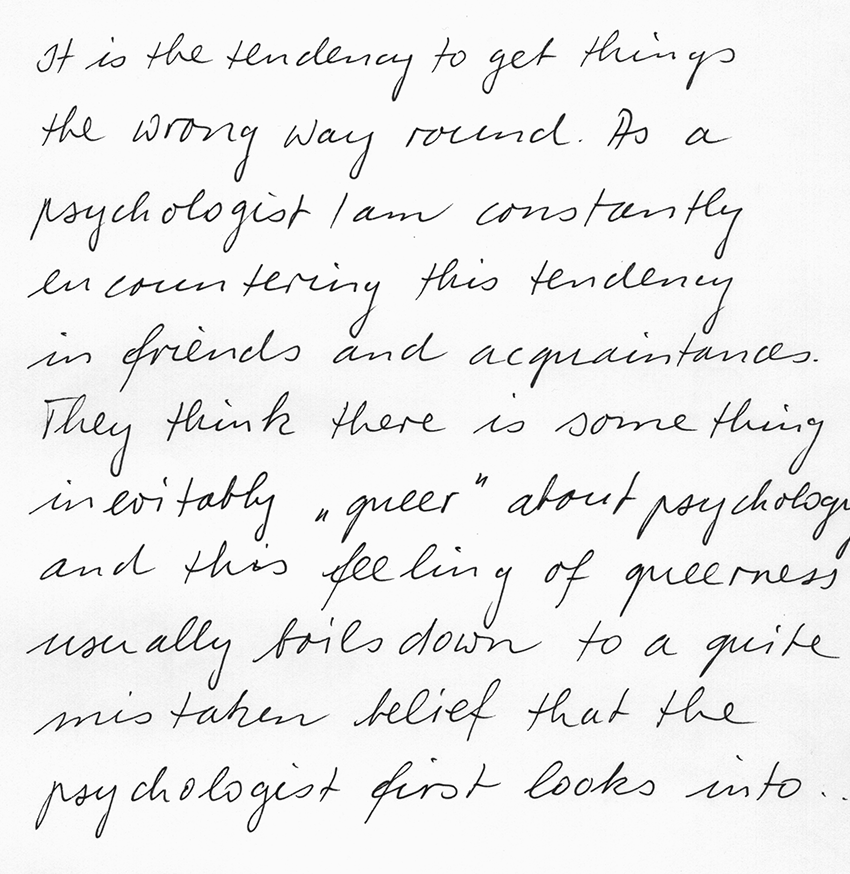 It is the tendency to get things
the wrong way round. As a
psychologist I am constantly
encountering this tendency
in friends and acquaintances.
They think there is something
inevitably „queer" about psychology
and this feeling of queerness
usually boils down to a quite
mistaken belief that the
psychologist first looks into..